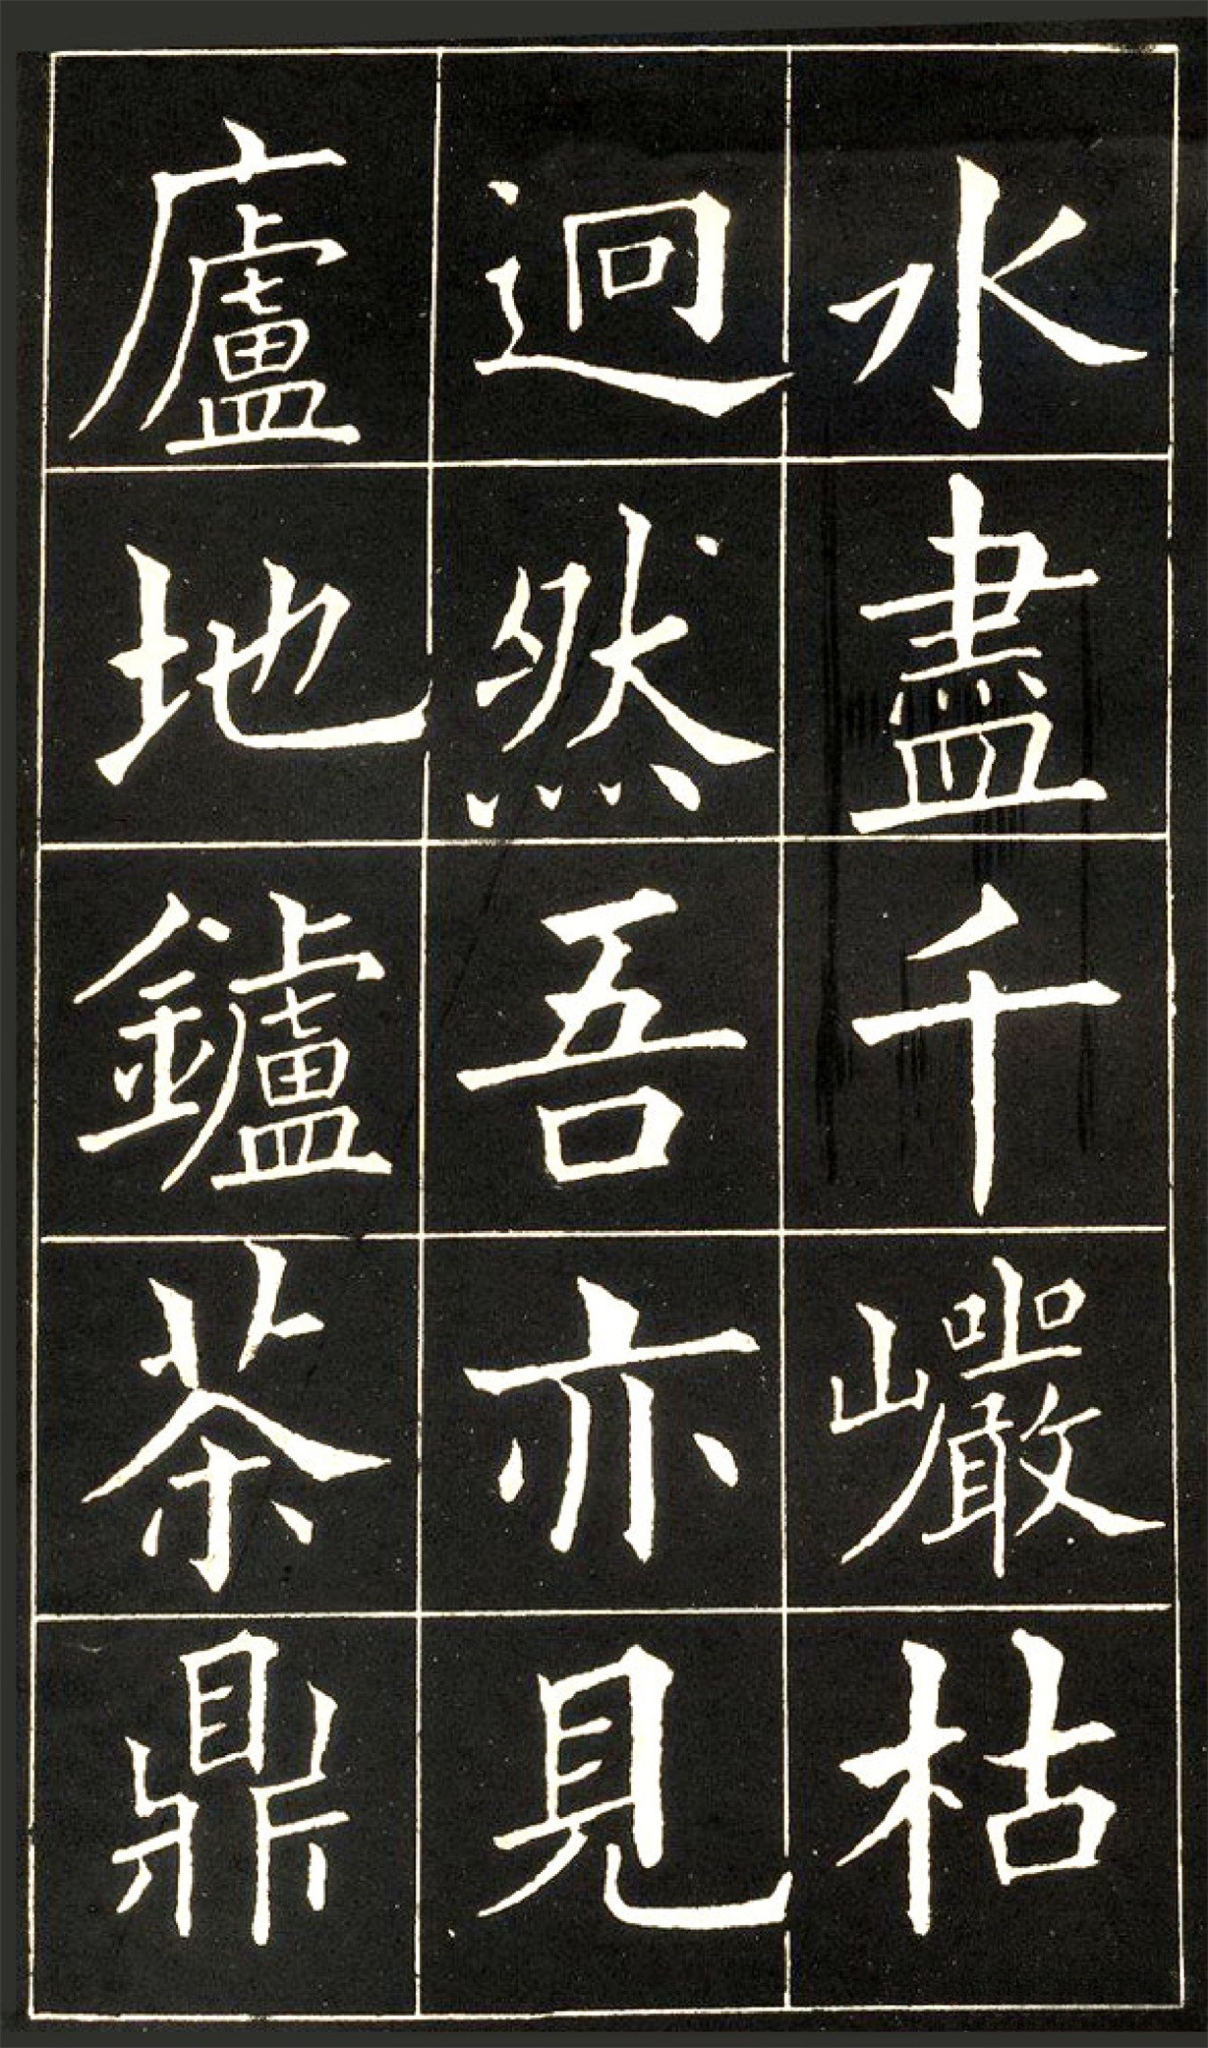 水盡千巖枯
迥然吾亦見
廬地鑪茶鼎